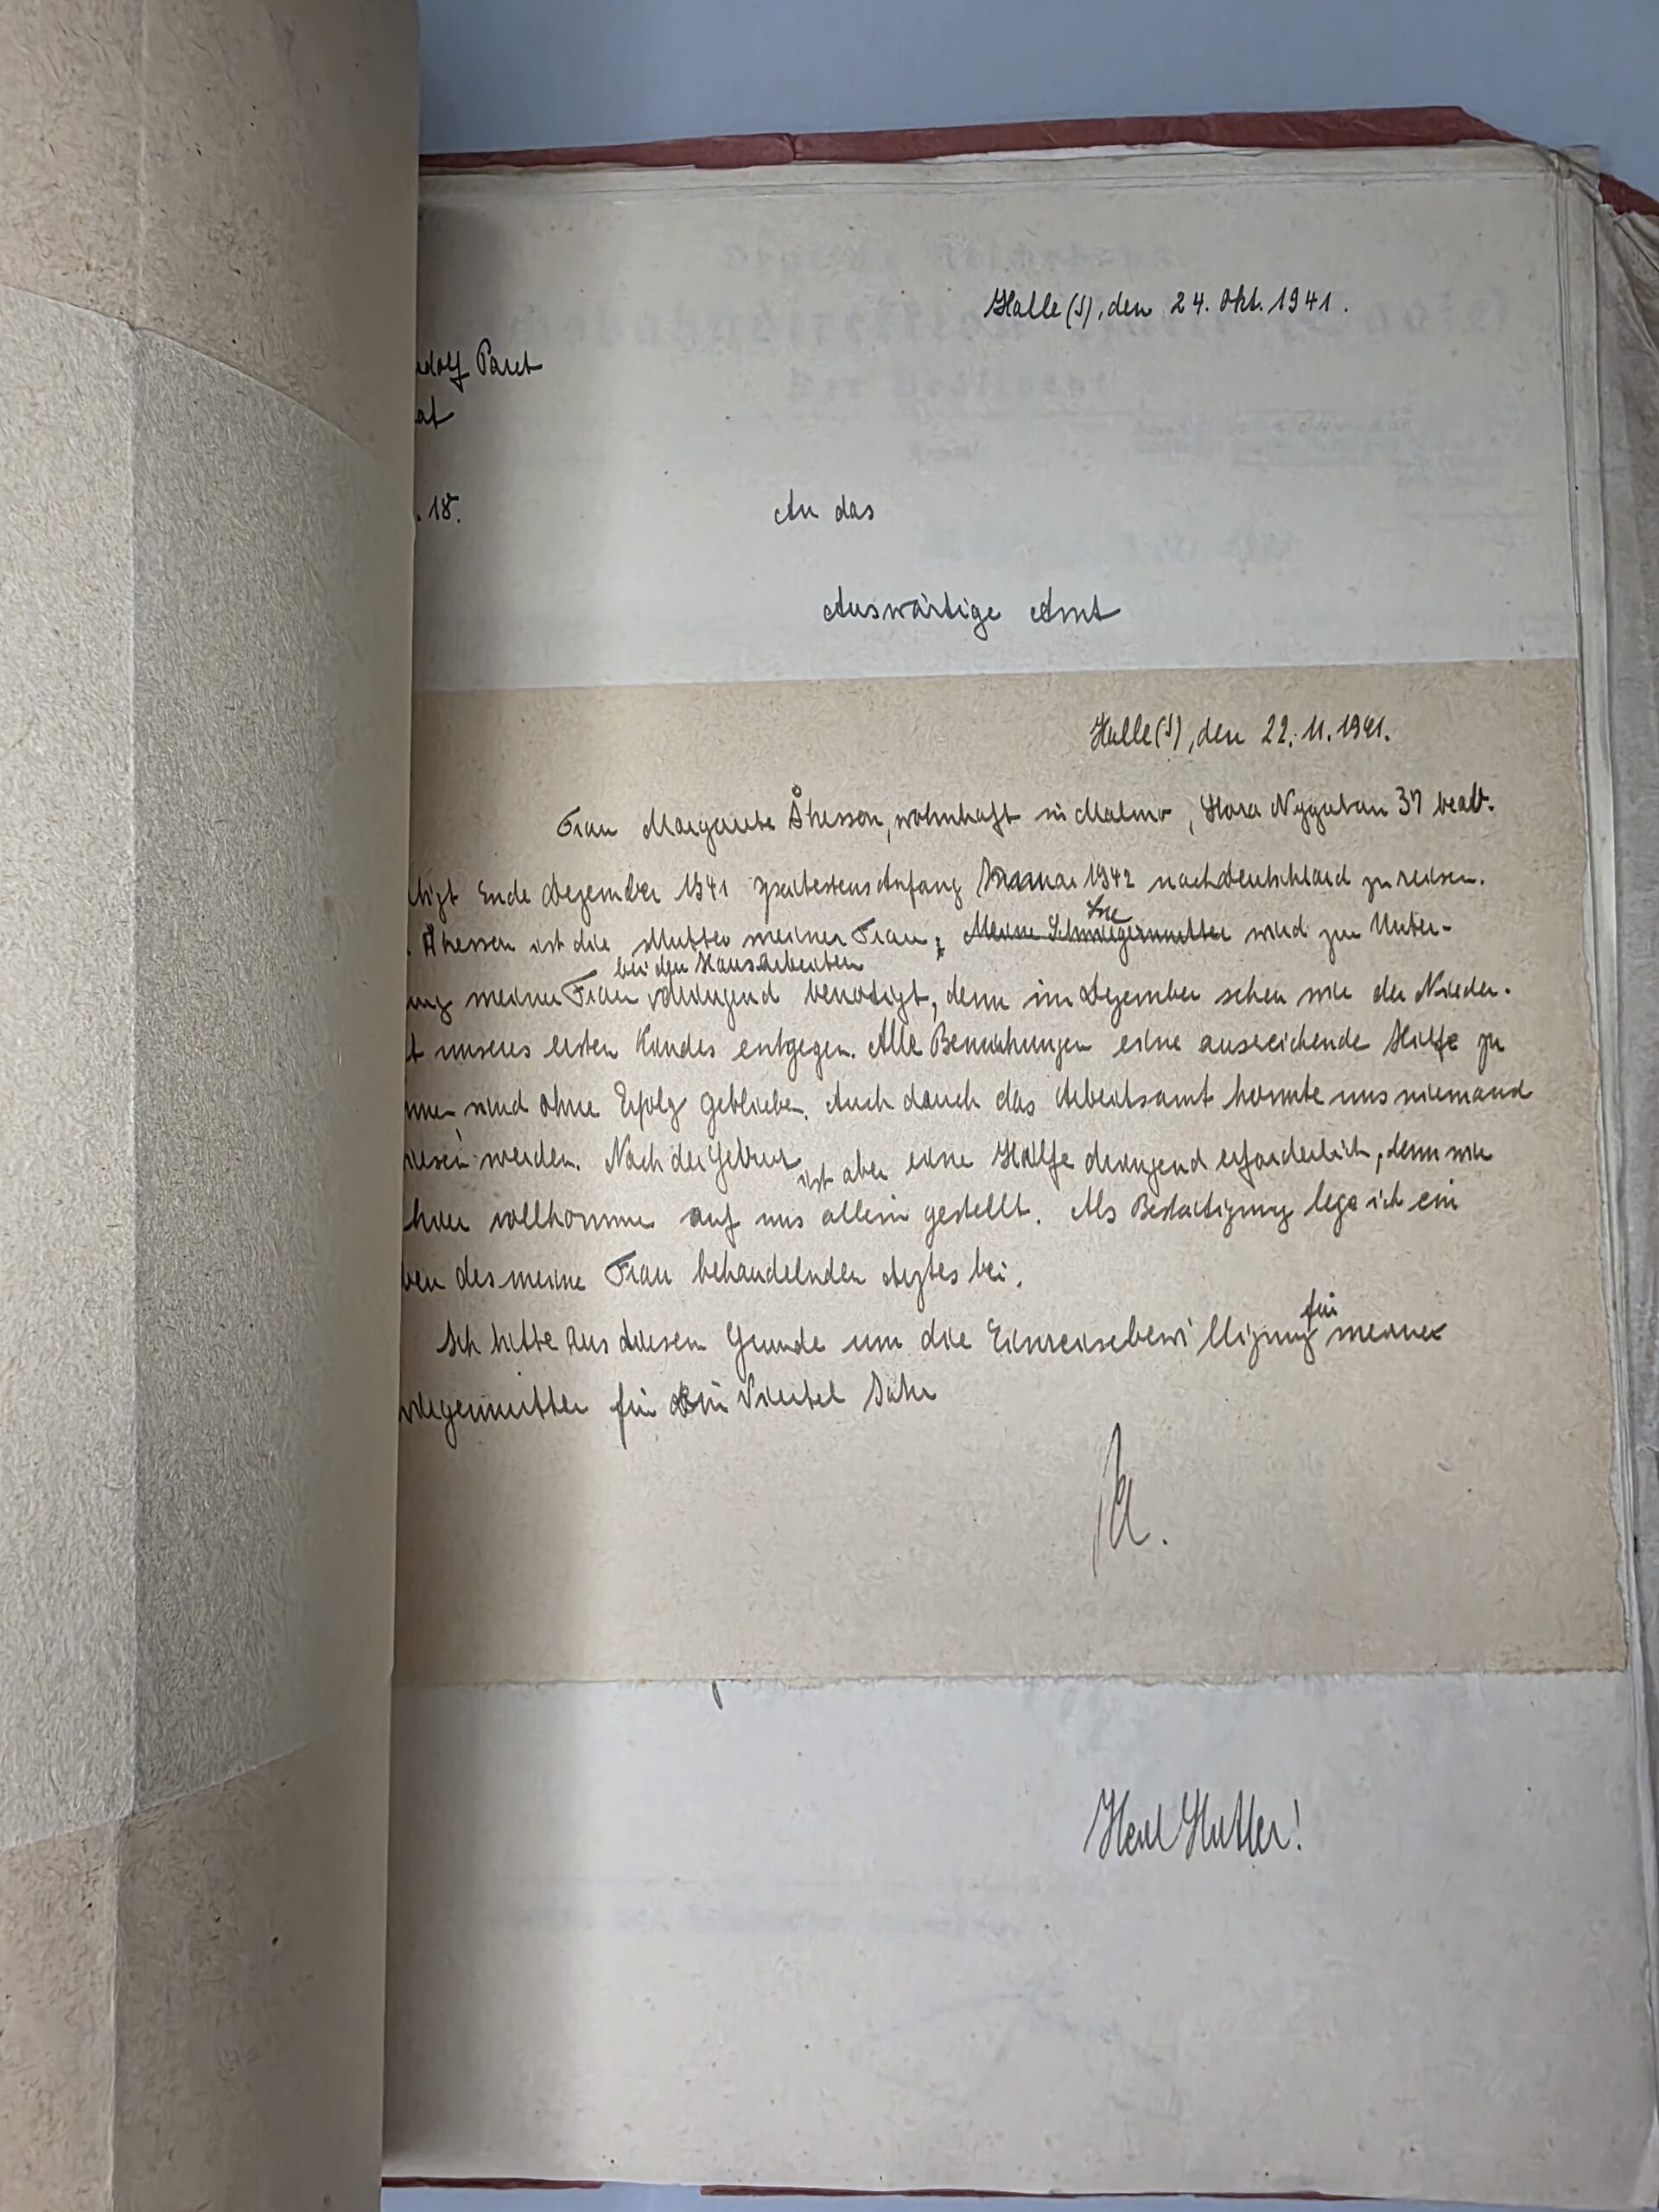 Halle (S), den 24. Okt. 1941.
udolf Paret
at
. 18.
An das
Auswärtige Amt
Halle (S), den 22. 11. 1941.
Frau Margarete Åkesson, wohnhaft in Malmö, Stora Nygatan 37 beab-
tigt Ende Dezember 1941 spätestens Anfang Januar 1942 nach Deutschland zu reisen.
. Åkesson ist die Mutter meiner Frau; Meine Schwiegermutter Sie wird zur Unter-
ung meiner Frau bei den Hausarbeiten dringend benötigt, denn im Dezember sehen wir der Nieder-
t unseres ersten Kindes entgegen. Alle Bemühungen eine ausreichende Hilfe zu
sind ohne Erfolg geblieben. Auch durch das Arbeitsamt konnte uns niemand
iesen werden. Nach der Geburt ist aber eine Hilfe dringend erforderlich, denn wir
hier vollkommen auf uns allein gestellt. Als Bestätigung lege ich ein
ben des meine Frau behandelnden Arztes bei.
Ich bitte aus diesem Grunde um die Einreisebewilligung für meine
wiegermutter für ein Viertel Jahr
Heil Hitler!